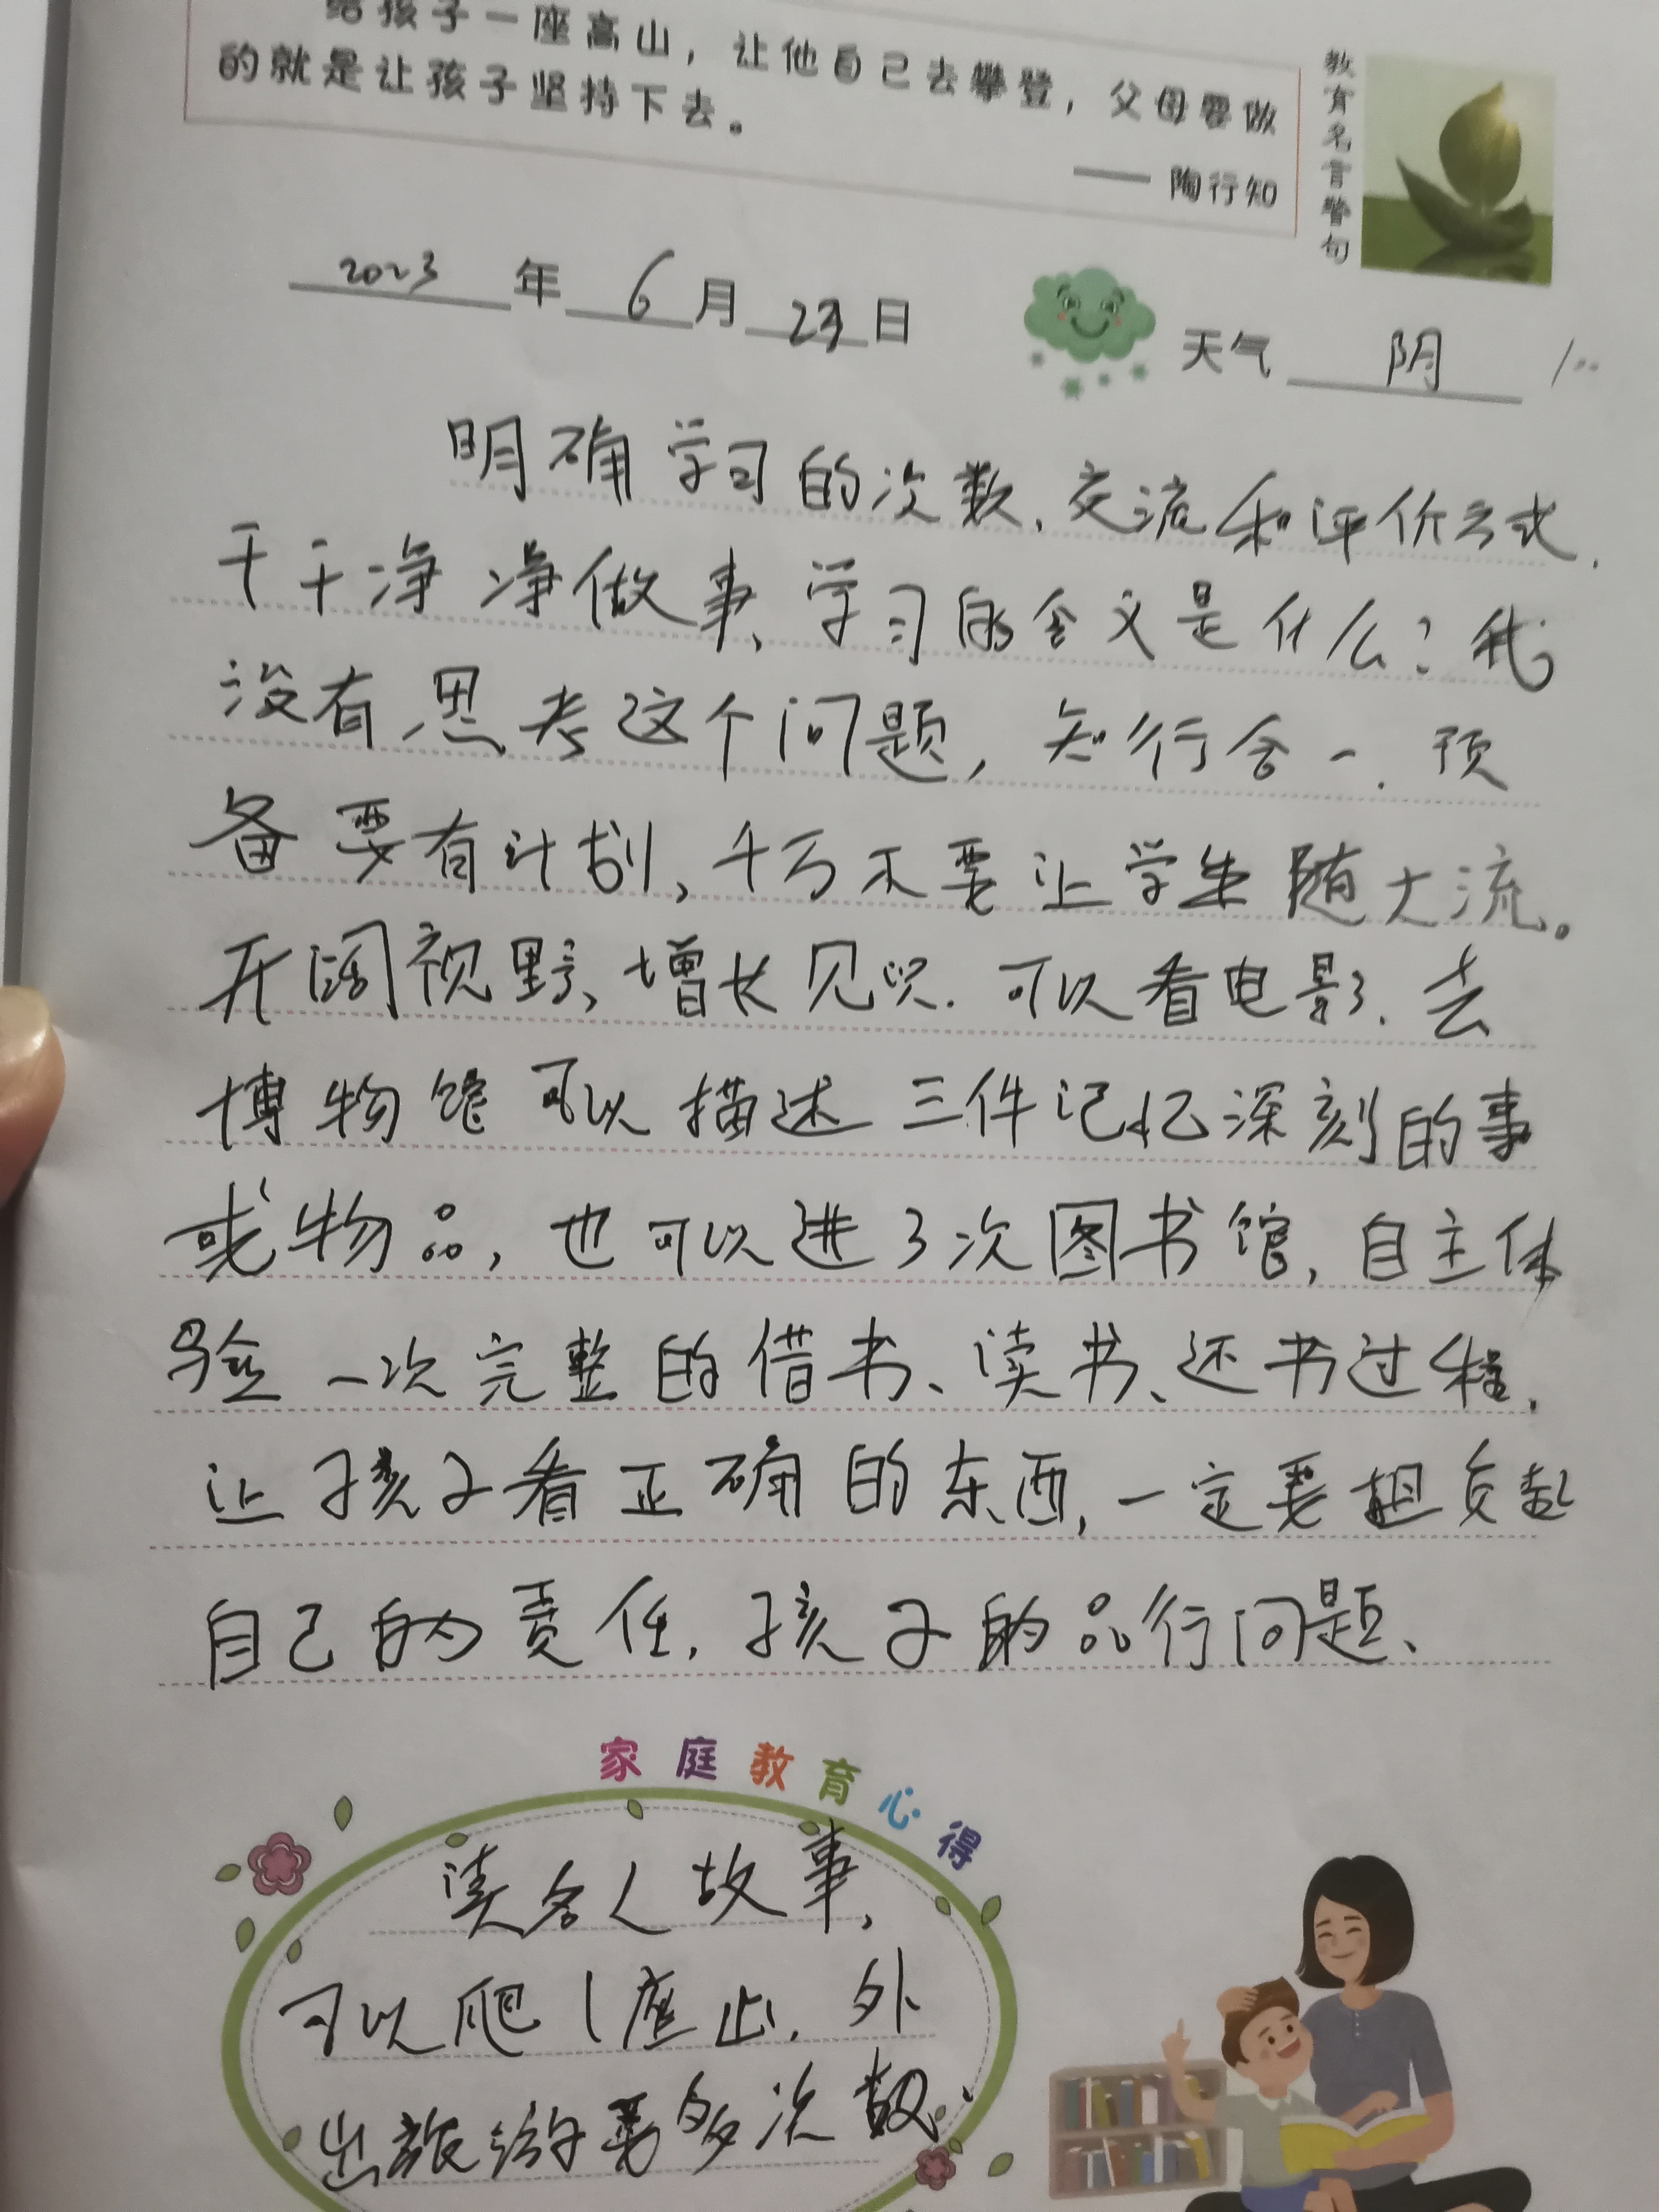 给孩子一座高山，让他自己去攀登，父母要做
的就是让孩子坚持下去。
—— 陶行知
教育名言警句
2023 年 6 月 23 日
天气 阴
明确学习的次数、交流和评价方式、
干干净净做事、学习的含义是什么？我
没有思考这个问题，知行合一、预
备要有计划，千万不要让学生随大流。
开阔视野，增长见识、可以看电影、去
博物馆可以描述三件记忆深刻的事
或物品，也可以进3次图书馆，自主体
验一次完整的借书、读书、还书过程，
让孩子看正确的东西，一定要担负起
自己的责任，孩子的品行问题、
家庭教育心得
读名人故事，
可以爬1座山、外
出旅游要多次数、